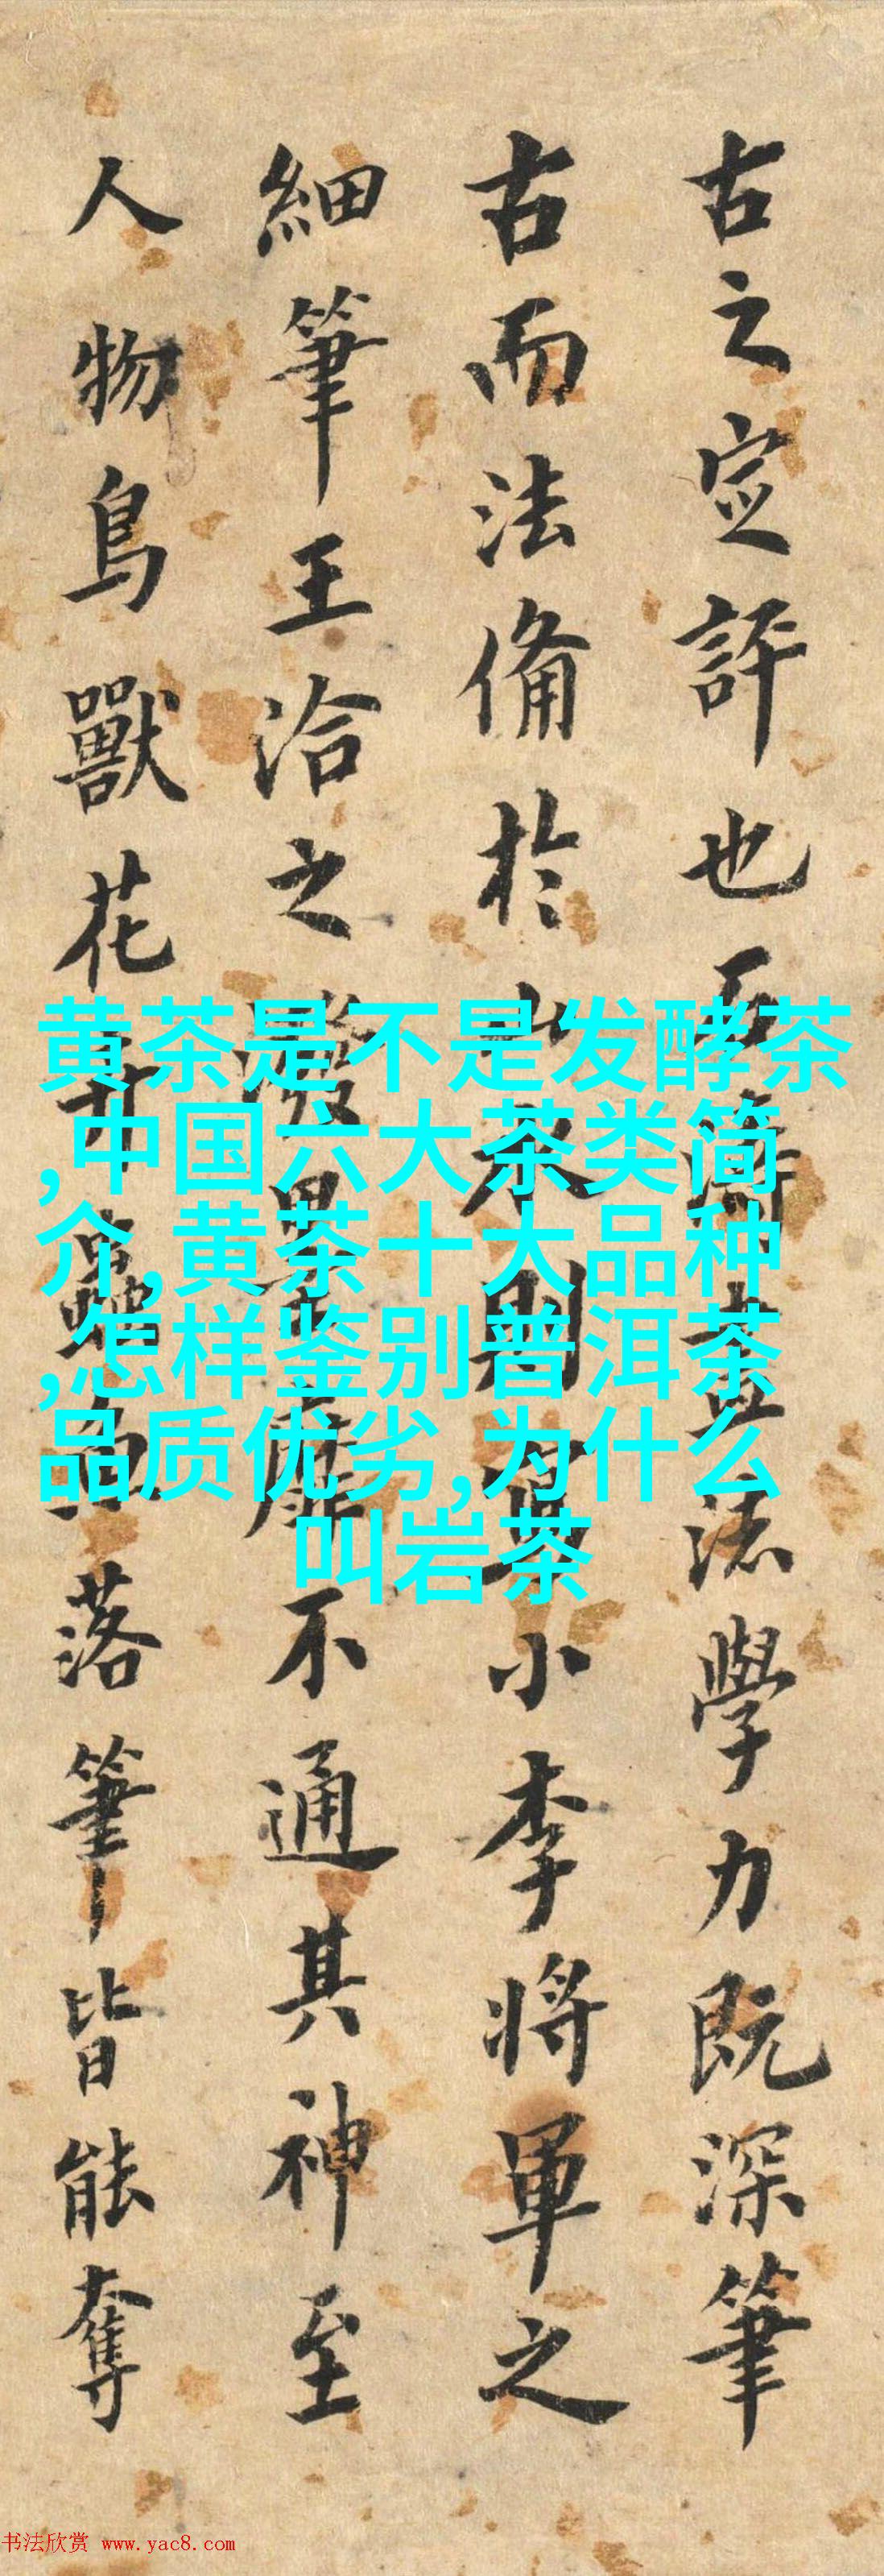 古之定評也石濤畫法學力既深筆
古而法備於山水則爲小李將軍之
細筆王洽之潑墨靡不通其神至
人物鳥獸花卉蟲魚落筆皆能奪
黄茶是不是发酵茶
,中国六大茶类简
介,黄茶十大品种
,怎样鉴别普洱茶
品质优劣,为什么
叫岩茶
书法欣赏 www.yac8.com